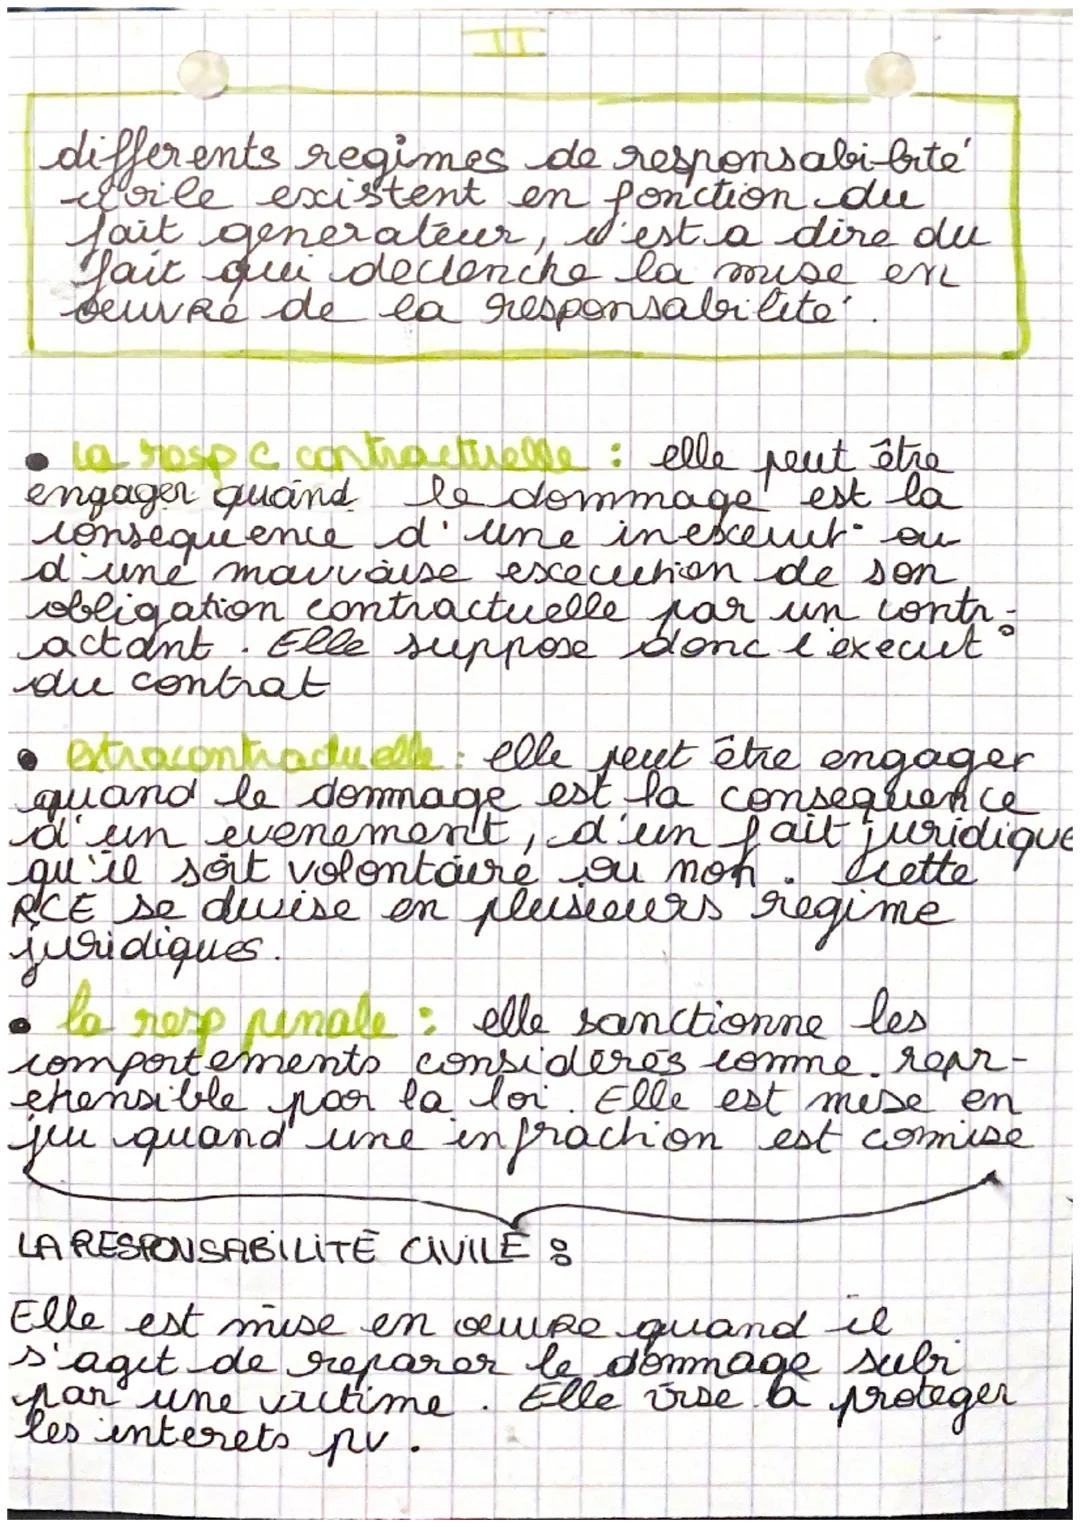 II
differents regimes de responsabi-lité
civile existent en fonction du
fait generateur, c'est a dire du
fait qui declenche la mise en
oeuvre de la responsabilité.
• la resp c contractuelle : elle peut être
engager quand le dommage est la
consequence d'une inexecut° ou
d'une mauvaise execution de son
obligation contractuelle par un contr-
actant. Elle suppose donc l'execut°
du contrat
• extracontractuelle : elle peut être engager
quand le dommage est la consequence
d'un evenement, d'un fait juridique
qu'il soit volontaire ou non. Cette
RCE se divise en plusieurs regime
juridiques.
• la resp penale : elle sanctionne les
comportements considerés comme repr-
ehensible par la loi. Elle est mise en
jeu quand une infraction est comise
LA RESPONSABILITÉ CIVILE :
Elle est mise en oeuvre quand il
s'agit de reparer le dommage subi
par une victime. Elle vise a proteger
les interets pv.